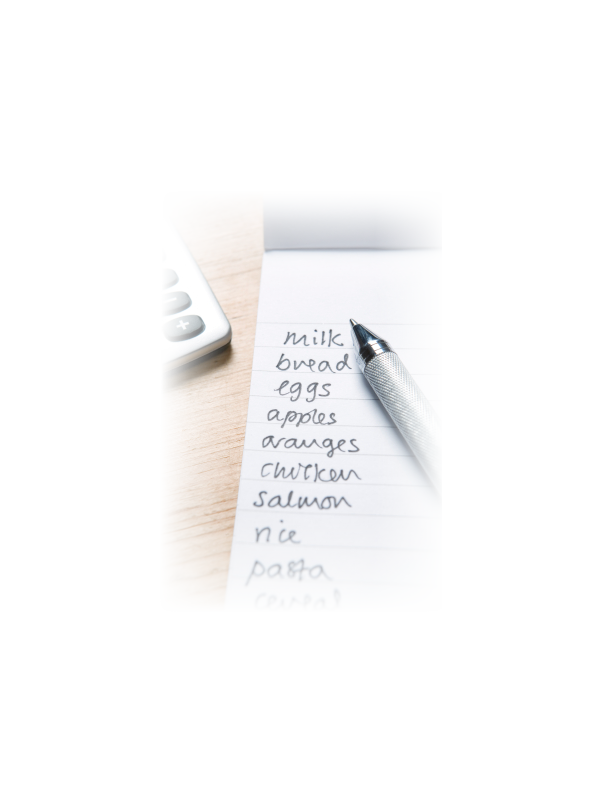 milk
bread
eggs
apples
oranges
chicken
salmon
rice
pasta
cereal